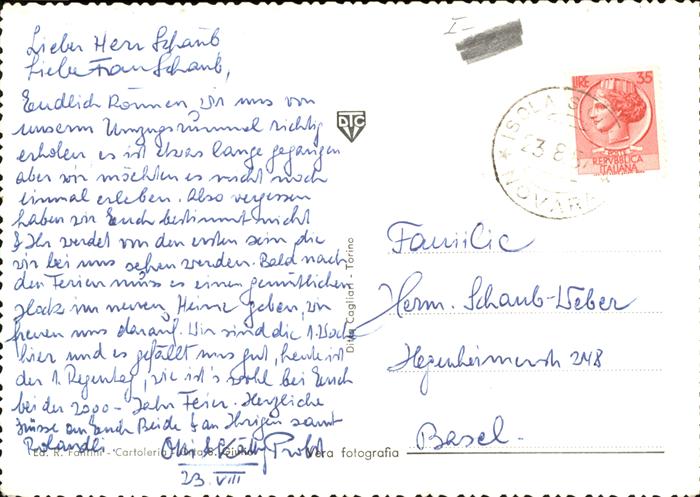 Lieber Herr Schaub
Liebe Frau Schaub,
Endlich können wir uns von
unserm Umzugsrummel richtig
erholen es ist etwas lange gegangen
aber wir möchten es nicht noch
einmal erleben. Also vergessen
haben wir Euch bestimmt nicht
& Ihr werdet von den ersten sein die
wir bei uns sehen werden. Bald nach
den Ferien muss es einen gemütlichen
Hock im neuen Heim geben, wir
freuen uns darauf. Wir sind die 1. Woche
hier und es gefällt uns gut, heute ist
der 1. Regentag, wie ist's wohl bei Euch
bei der 2000-Jahr Feier. Herzliche
Grüsse an Euch Beide & an Ihrigen samt
Rolandli
Probst
23. VIII
I-
DTC
Ditta Cagliari - Torino
Ed. R. - Cartoleria
Vera fotografia
LIRE 35
POSTE
REPVBBLICA
ITALIANA
ISOLA
23.8
NOVARA
Familie
Herm. Schaub-Weber
Hegenheimerstr 248
Basel.